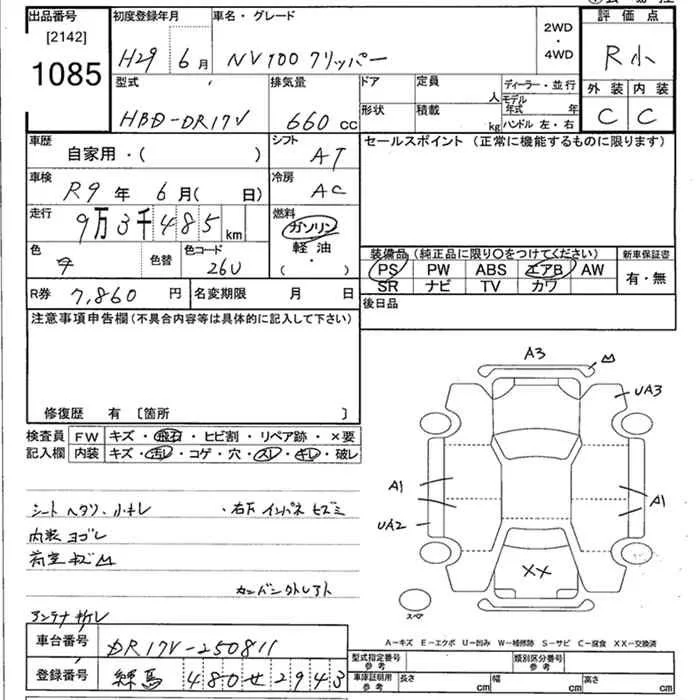 出品番号
[2142]
1085
初度登録年月
H29 6月
車名・グレード
NV100 クリッパー
2WD
・
4WD
評価点
R小
外装 内装
C C
型式
HBD-DR17V
排気量
660 cc
ドア
形状
定員
人
積載
kg
ディーラー・並行
モデル年式 年
ハンドル 左・右
車歴
自家用・( )
シフト
AT
セールスポイント (正常に機能するものに限ります)
車検
R9 年 6 月( 日)
冷房
AC
走行
9万3千485 km
燃料
ガソリン
軽油
( ・ )
色
色替
色コード
26U
装備品 (純正品に限り○をつけてください)
PS PW ABS エアB AW
SR ナビ TV カワ
新車保証書
有・無
R券 7,860 円
名変期限 月 日
後日品
注意事項申告欄 (不具合内容等は具体的に記入して下さい)
修復歴 有 [箇所 ]
検査員記入欄
FW キズ・飛石・ヒビ割・リペア跡・×要
内装 キズ・汚レ・コゲ・穴・スレ・キレ・破レ
シートヘタリ、小キレ
・右下インパネヒズミ
内装ヨゴレ
荷室キズ凹
アンテナ折レ
A3
UA3
A1
UA2
A1
XX
スペア
A−キズ E−エクボ U−凹み W−補修跡 S−サビ C−腐食 XX−交換済
車台番号
DR17V-250811
登録番号
練馬 480 せ 2943
型式指定番号
参考
類別区分番号
参考
車庫証明用
参考
長さ cm
幅 cm
高さ cm